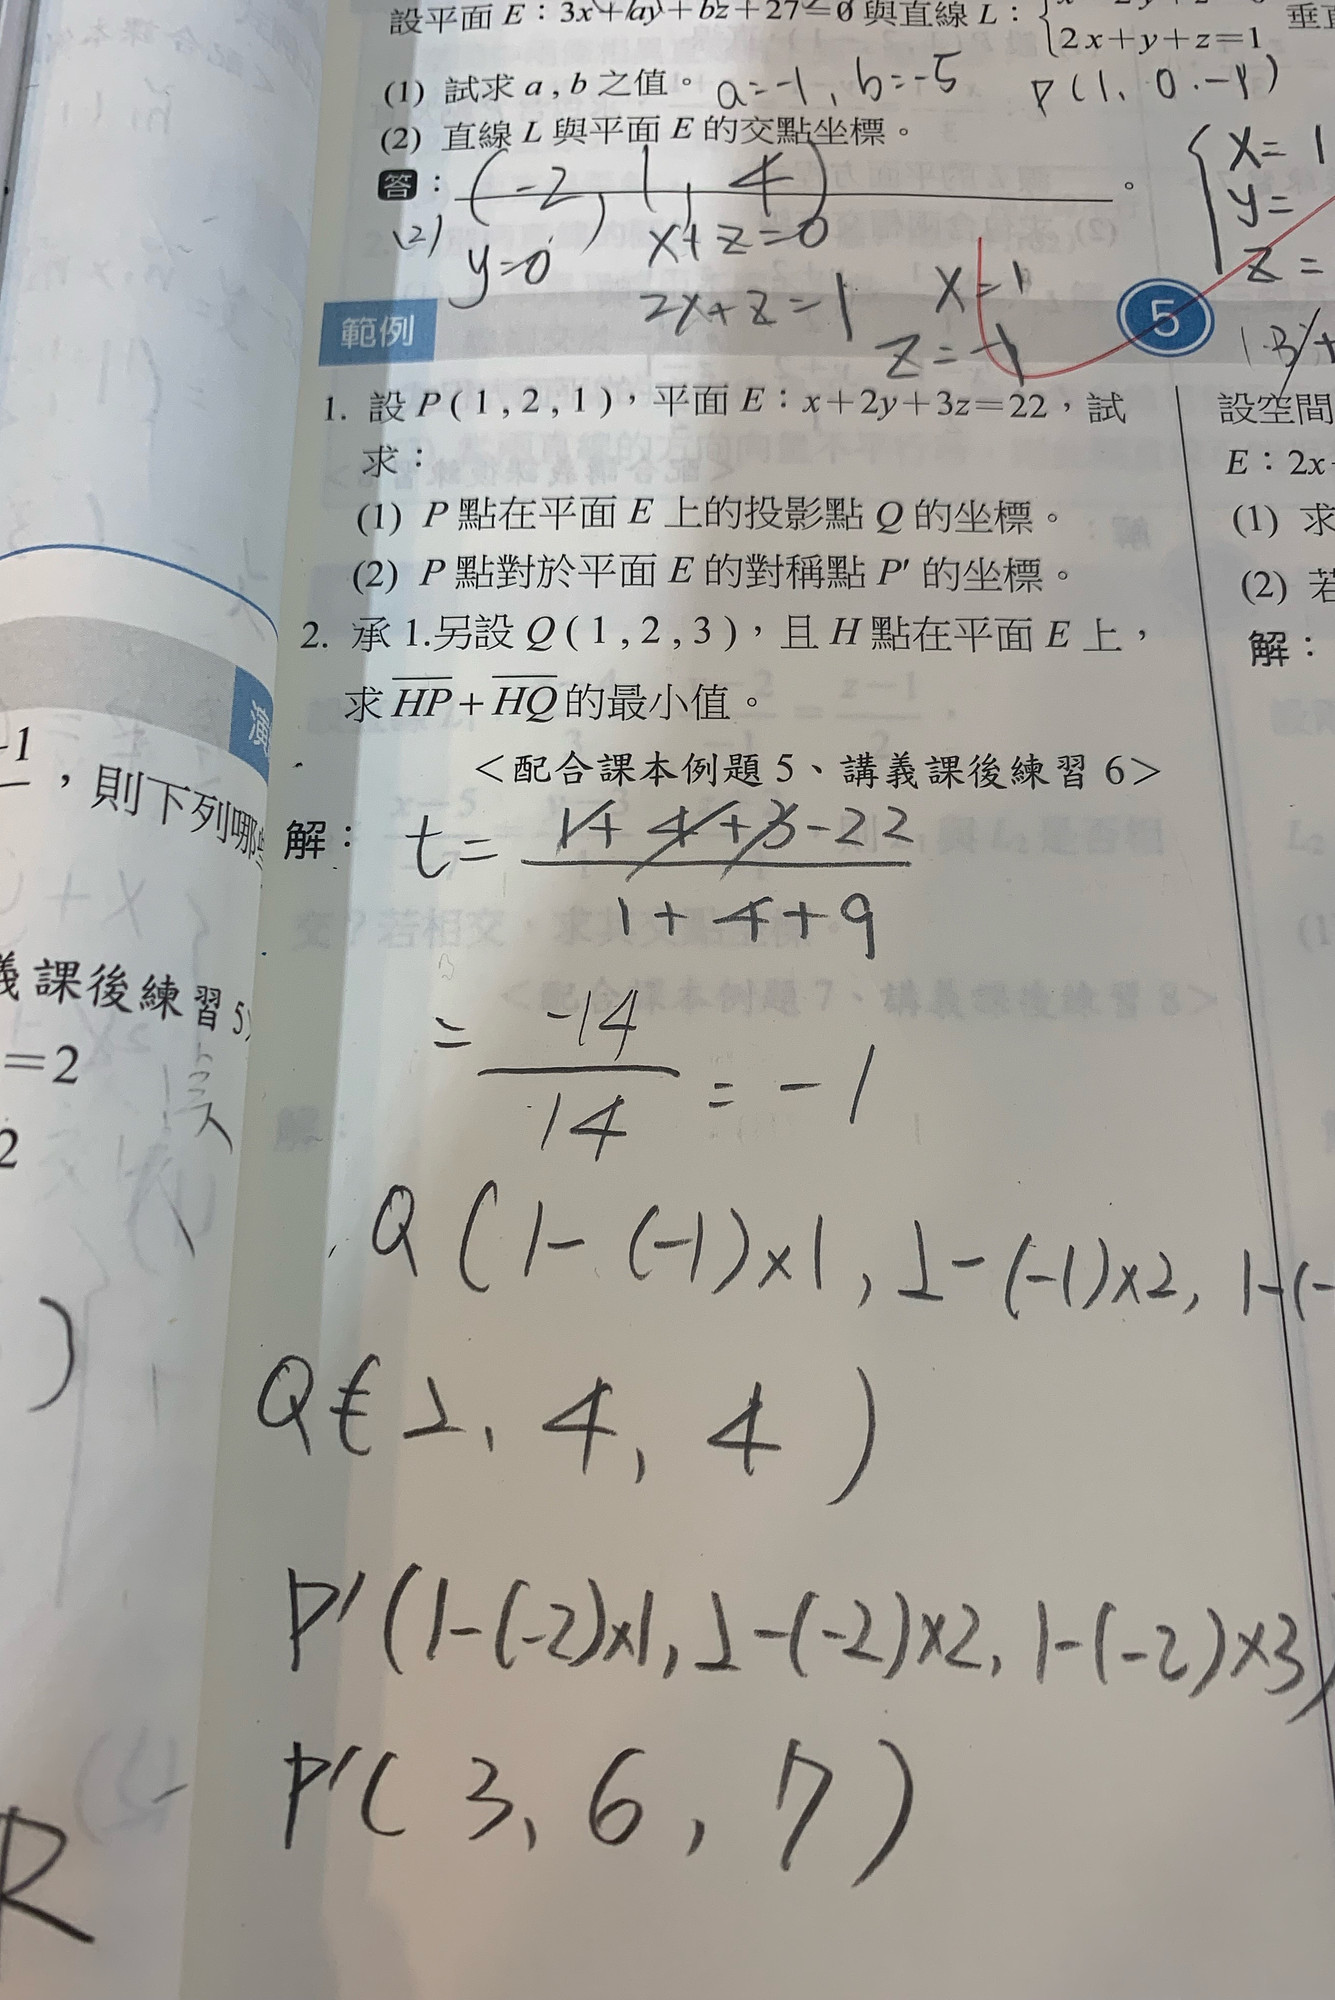 設平面 E：3x+ay+bz+27=0 與直線 L：
2x+y+z=1
(1) 試求 a , b 之值。 a=-1, b=-5 P(1, 0, -1)
(2) 直線 L 與平面 E 的交點坐標。
答： (-2, 1, 4) 。
(2) y=0 x+z=0
2x+z=1 x=1
z=-1
x=1
y=
z=
範例 5
1. 設 P ( 1 , 2 , 1 )，平面 E：x+2y+3z=22，試
求：
(1) P 點在平面 E 上的投影點 Q 的坐標。
(2) P 點對於平面 E 的對稱點 P' 的坐標。
2. 承 1.另設 Q ( 1 , 2 , 3 )，且 H 點在平面 E 上，
求 HP + HQ 的最小值。
<配合課本例題 5、講義課後練習 6>
解： t= 1+4+3-22
1+4+9
= -14
14
= -1
Q (1-(-1)×1, 2-(-1)×2, 1-(-
Q(2, 4, 4)
P'(1-(-2)×1, 2-(-2)×2, 1-(-2)×3)
P'(3, 6, 7)
設空間
E：2x-
(1) 求
(2) 若
解：
，則下列哪
義課後練習 5
=2
2
)
R